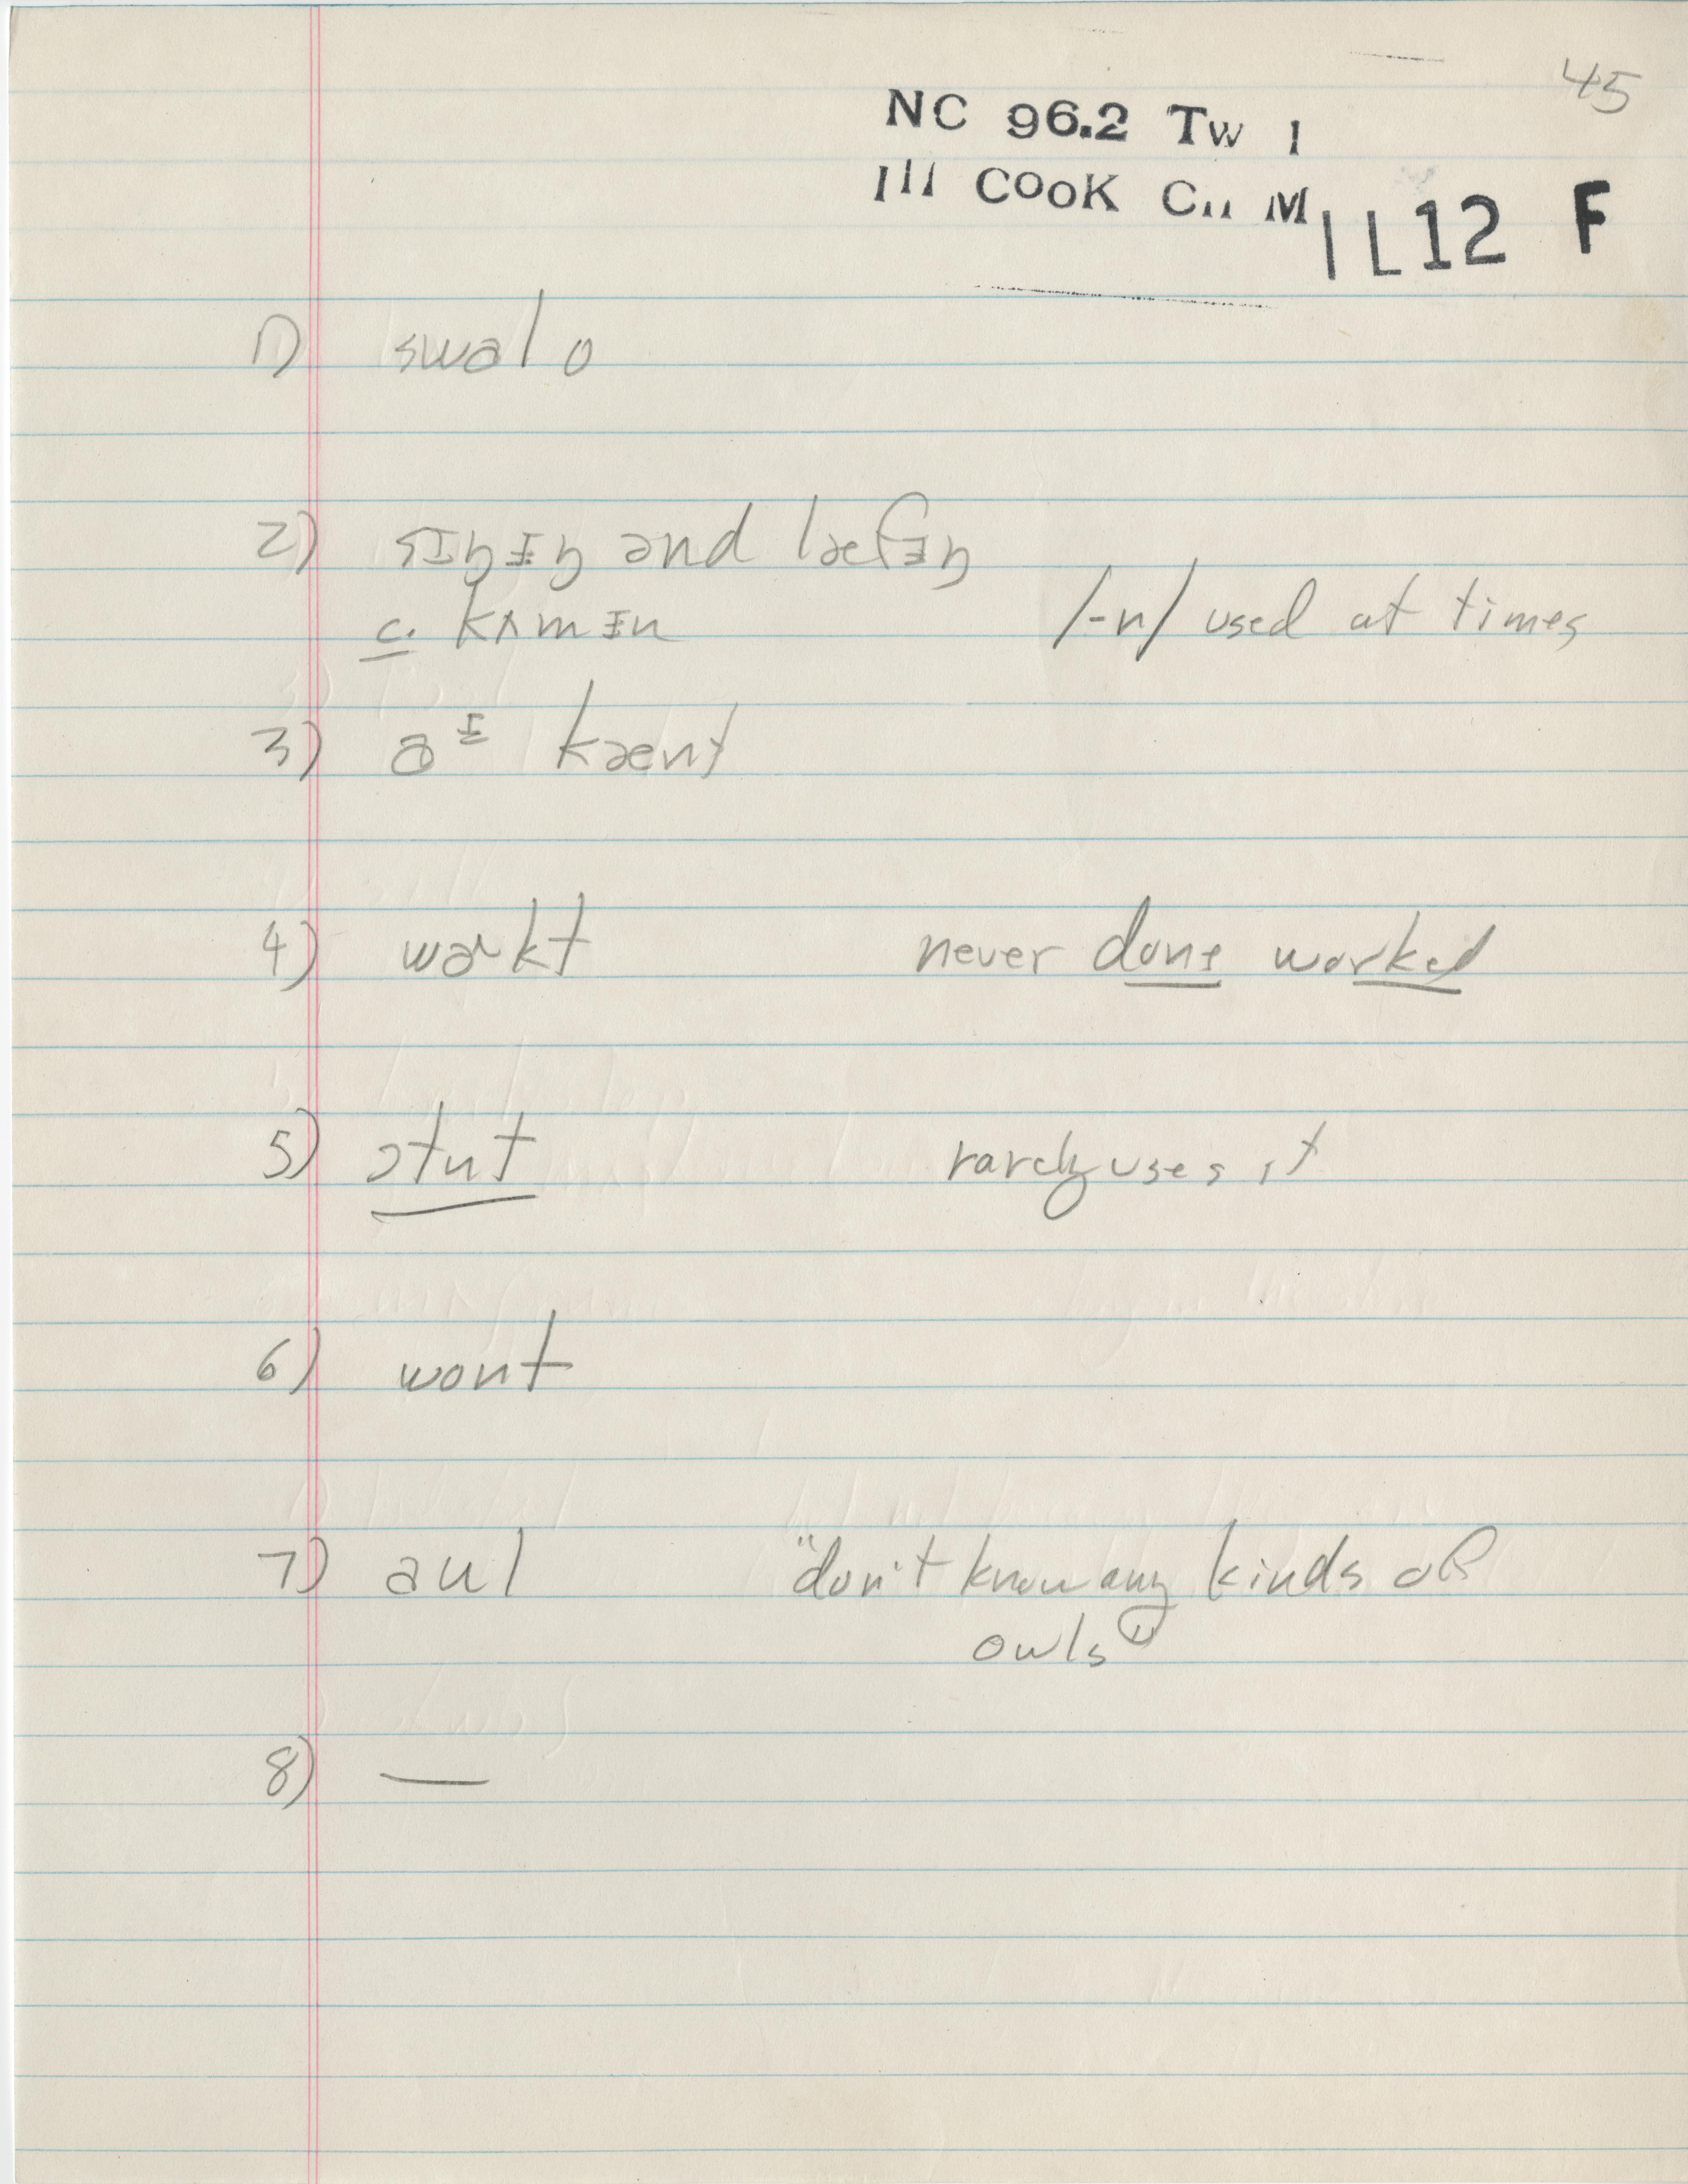 45
NC 96.2 Tw 1
Ill COOK Cıı M IL12 F
1) swalo
2) sɪŋɨŋ and læfɨŋ
c. kʌmɨn /-n/ used at times
3) aᵻ kænt
4) wɚkt never done worked
5) ɔtnt rarely uses it
6) wont
7) aul "don't know any kinds of
owls"
8) —